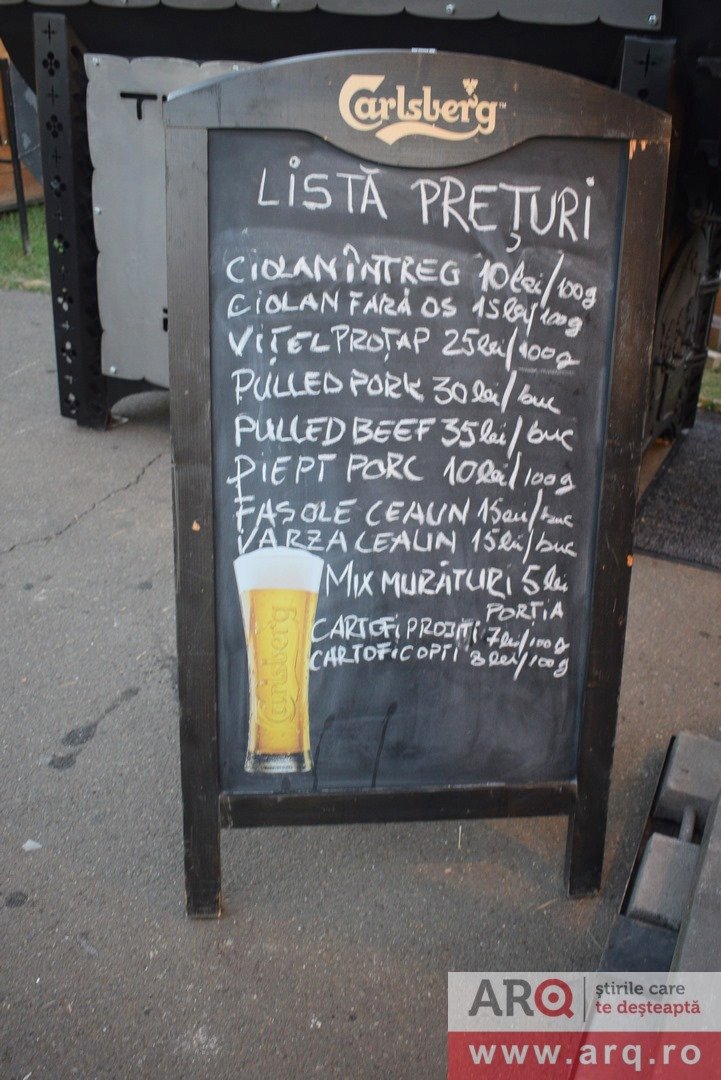 Carlsberg
LISTĂ PREȚURI
CIOLAN ÎNTREG 10 lei/100g
CIOLAN FARĂ OS 15 lei/100g
VIȚEL PROȚAP 25 lei/100g
PULLED PORK 30 lei/buc
PULLED BEEF 35 lei/buc
PIEPT PORC 10 lei/100g
FASOLE CEAUN 15 lei/buc
VARZA CEAUN 15 lei/buc
MIX MURĂTURI 5 lei
PORȚIA
CARTOFI PROJITI 7 lei/100g
CARTOFI COPTI 8 lei/100g
Carlsberg
ARQ știrile care
te deșteaptă
www.arq.ro